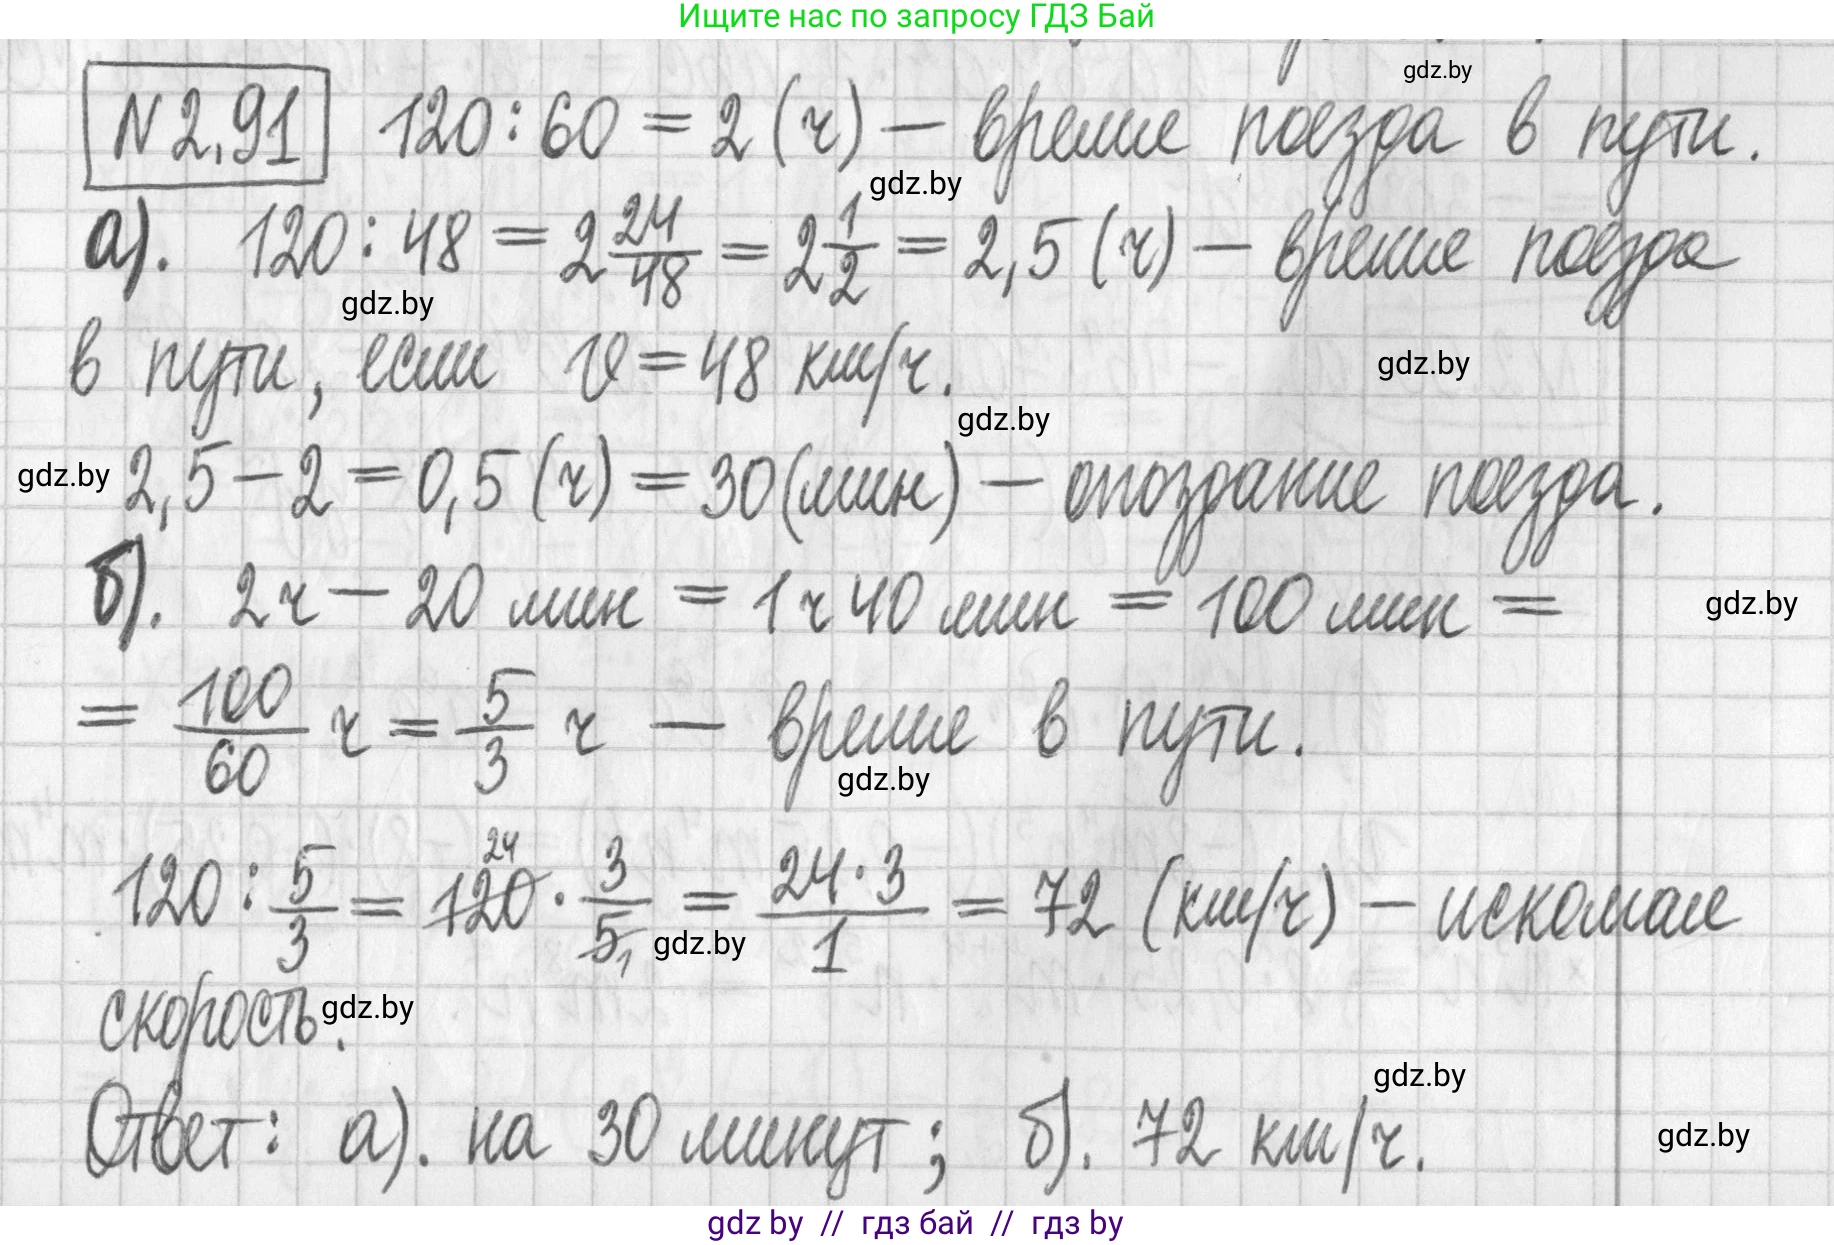 Ищите нас по запросу ГДЗ Бай
gdz.by
N 2.91 120:60 = 2 (ч) — время поезда в пути.
gdz.by
а). 120:48 = 2 24/48 = 2 1/2 = 2,5 (ч) — время поезда
gdz.by
в пути, если v = 48 км/ч.
gdz.by
gdz.by
gdz.by
2,5 - 2 = 0,5 (ч) = 30 (мин) — опоздание поезда.
б). 2ч - 20 мин = 1 ч 40 мин = 100 мин =
gdz.by
= 100/60 ч = 5/3 ч — время в пути.
gdz.by
120 : 5/3 = 120 24 · 3/5 1 = 24·3/1 = 72 (км/ч) — искомая
gdz.by
скорость.
gdz.by
gdz.by
Ответ: а). на 30 минут; б). 72 км/ч.
gdz.by
gdz by // гдз бай // гдз by